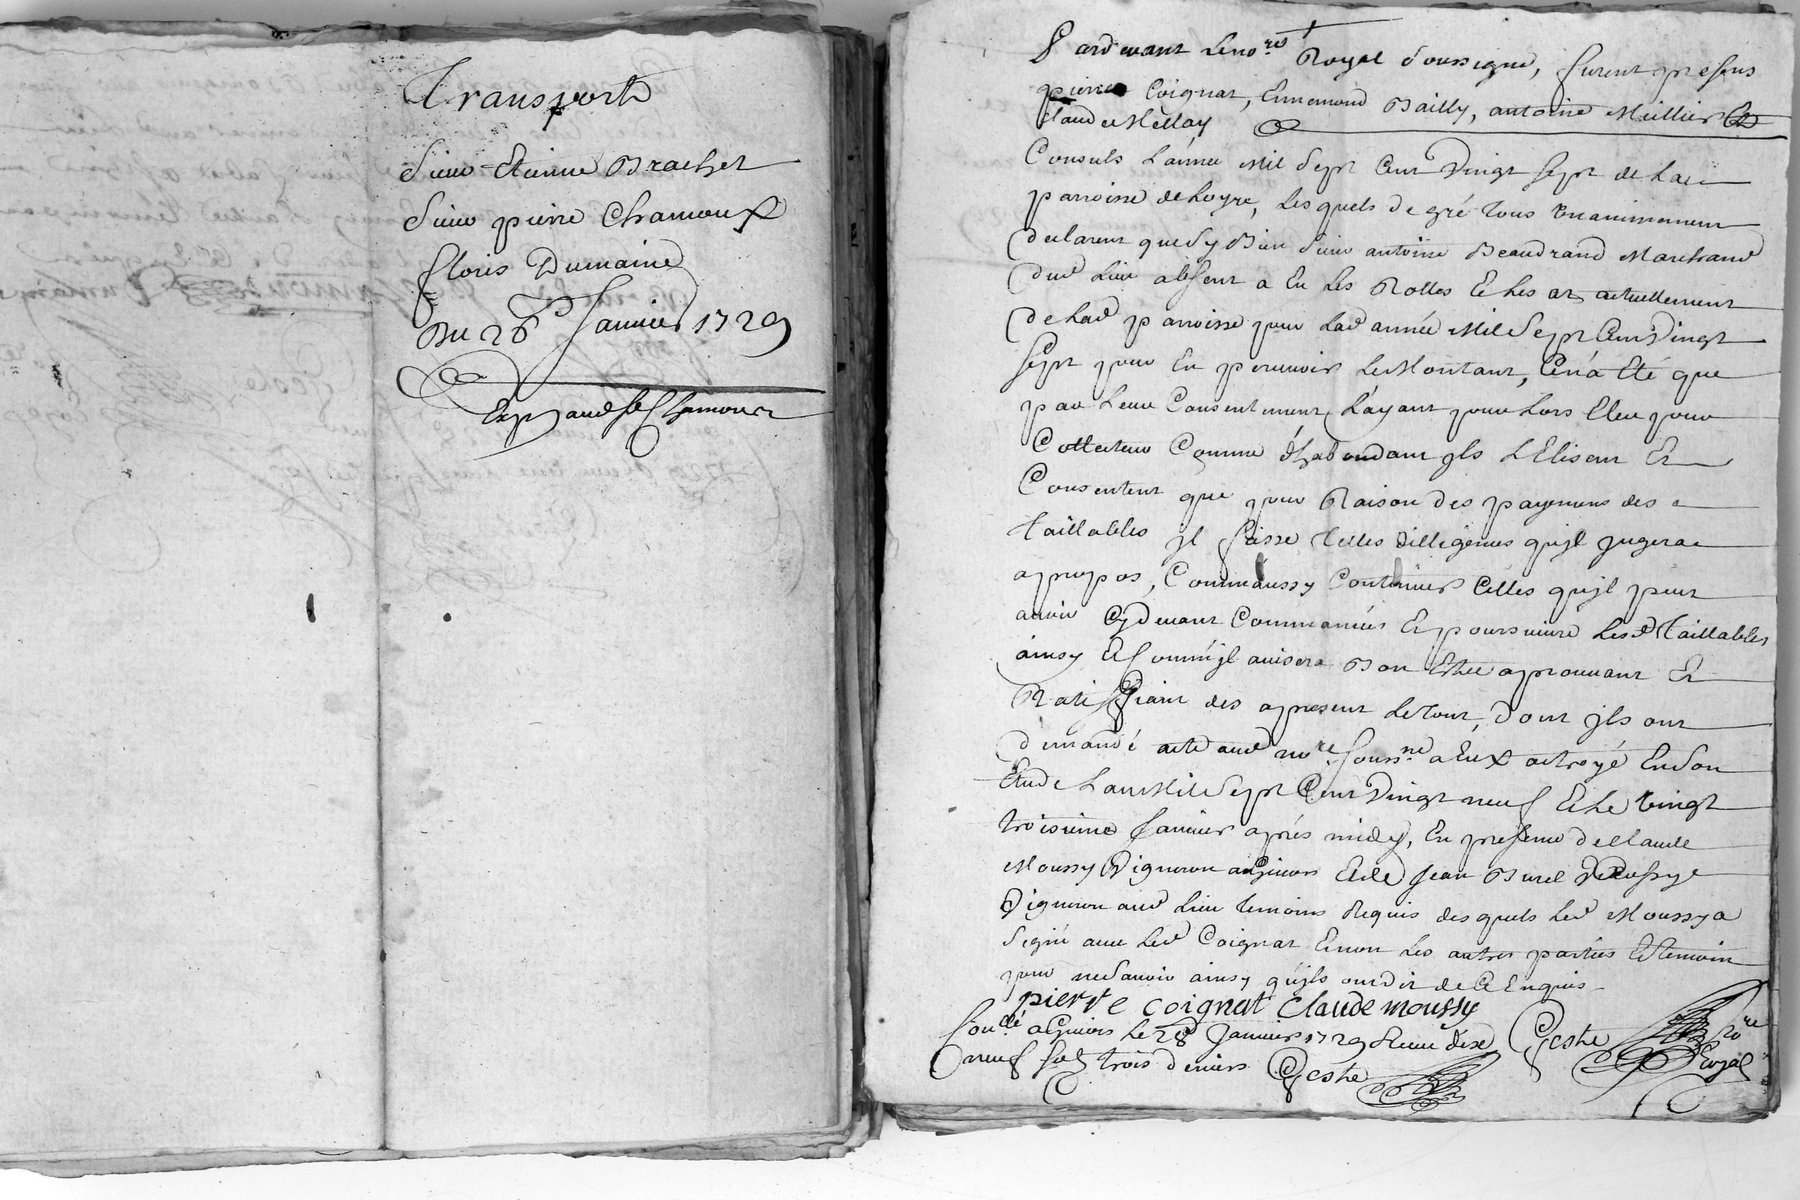 Transport
Sieur Etienne Brachet
Sieur pierre Chamoux
floris Dumaine
Du 26e Janvier 1729
Exp aud Sr Chamoux
Pardevant le nore Royal soussigné, furent presens
pierre Coignat, Ennemond Bailly, antoine Meillier
Claude Mellay
Consuls L'année Mil Sept Cent Vingt Sept de la
parroisse de Loyre, Lesquels de gré tous unanimement
declarent que Sy Bien Sieur antoine Beaudrand Marchand
dud Lieu absent a Eu Les Rolles Et Les a actuellement
de Lad parroisse pour Lad année Mil Sept Cent Vingt
Sept pour En percevoir Le Montant, C'en a Eté que
par Leur Consentement, L'ayant pour Lors Eleu pour
Collecteur Comme d'habondant jls L'Elisent Et
Consentent que pour Raison des payemens des
taillables jl fasse telles dilligences qu'jl jugera
apropos, Comm'aussy Continuer Celles qu'jl peut
avoir Cydevant Commancées Et poursuivre Lesd taillables
ainsy Et Comm'jl avisera Bon Estre aprouvant Et
Ratiffiant des apresent Le tout, dont jls ont
demandé acte aud nore soussné a Eux octroyé En Son
Etude L'an Mil Sept Cent Vingt neuf Et Le Vingt
troisieme Janvier aprés midy, En presence de Claude
Moussy Vigneron a Givors Et de Jean Burel
Vigneron aud Lieu temoins Requis desquels Led Moussy a
Signé avec Led Coignat Et non Les autres parties Et temoin
pour ne Savoir ainsy qu'jls ont dit de Ce Enquis
pierre coignat Claude moussy
Conllé a Givors Le 28 Janvier 1729 Receu dix
neuf Sols trois deniers Geshe
Geshe Nore Royal